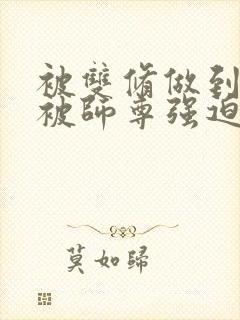 被雙脩做到
被師尊强迫
莫如歸